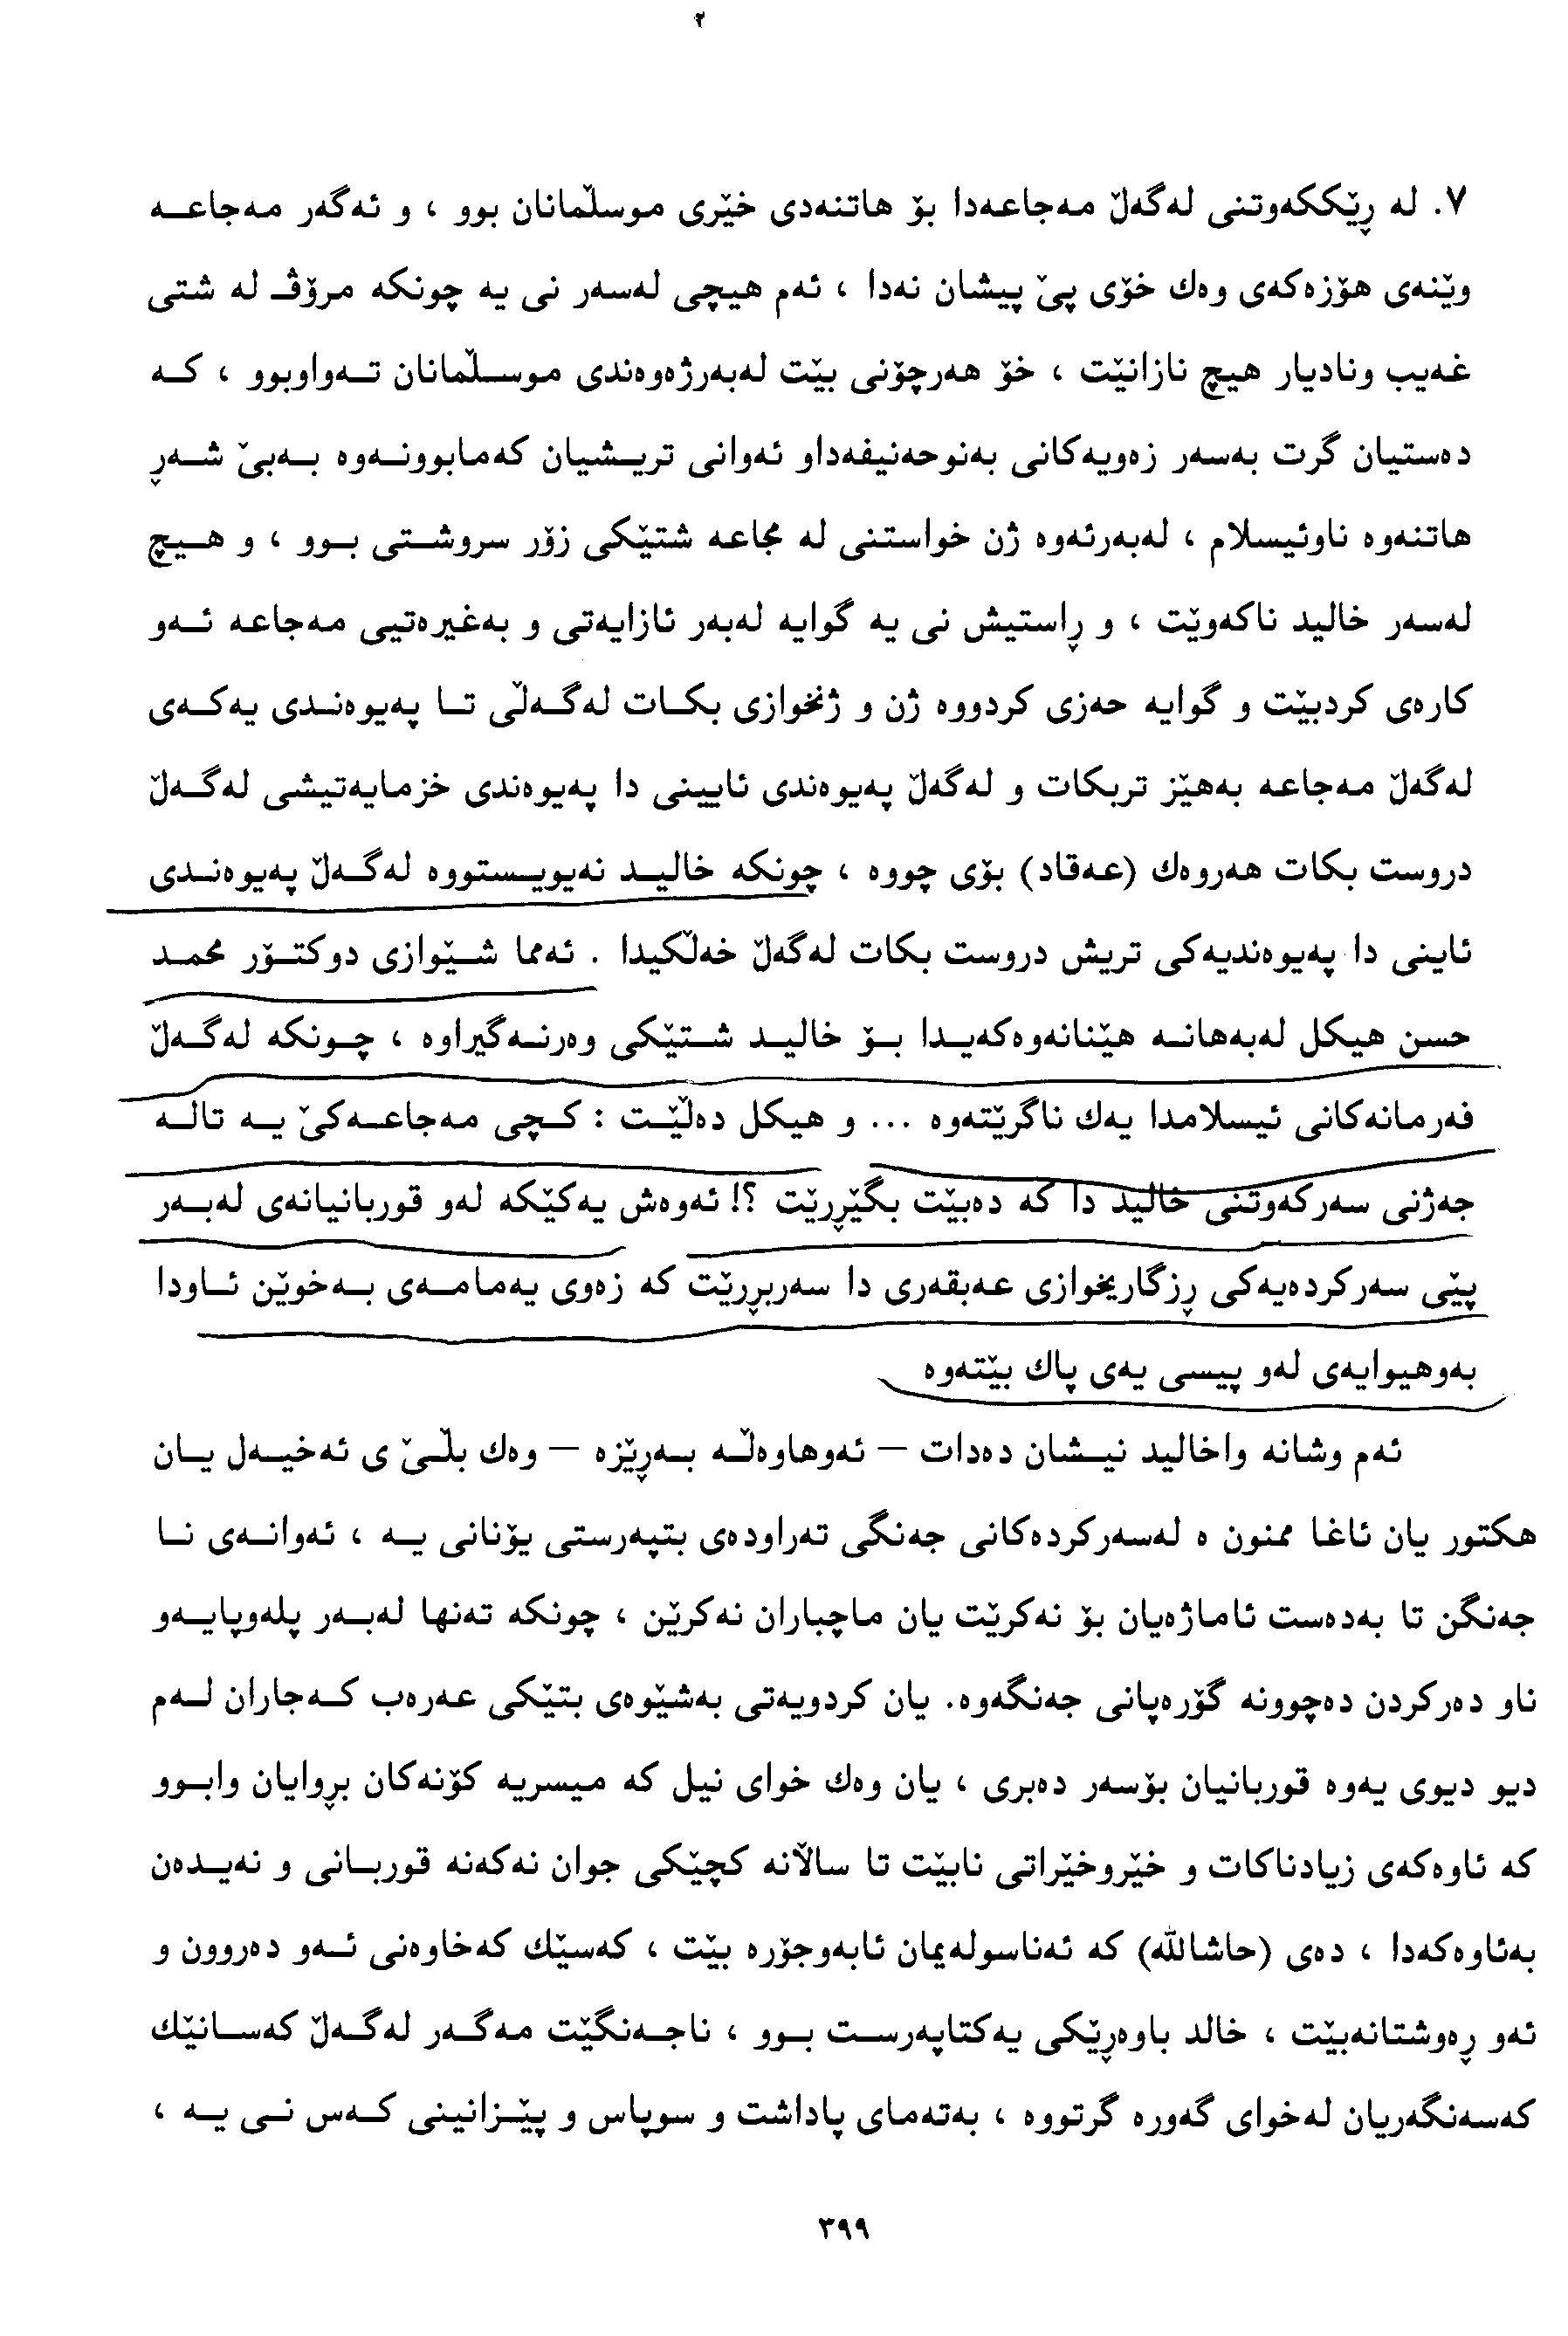 ٢
٧. لە ڕێککەوتنی لەگەڵ مەجاعەدا بۆ هاتنەدی خێری موسڵمانان بوو ، و ئەگەر مەجاعــە
وێنەی هۆزەکەی وەك خۆی پێ پیشان نەدا ، ئەم هیچی لەسەر نی یە چونکە مرۆڤ لە شتی
غەیب ونادیار هیچ نازانێت ، خۆ هەرچۆنی بێت لەبەرژەوەندی موســڵمانان تــەواوبوو ، کــە
دەستیان گرت بەسەر زەویەکانی بەنوحەنیفەداو ئەوانی تریــشیان کەمابوونــەوە بــەبێ شــەڕ
هاتنەوە ناوئیسلام ، لەبەرئەوە ژن خواستنی لە مجاعە شتێکی زۆر سروشــتی بــوو ، و هــیچ
لەسەر خالید ناکەوێت ، و ڕاستیش نی یە گوایە لەبەر ئازایەتی و بەغیرەتیی مەجاعە ئــەو
کارەی کردبێت و گوایە حەزی کردووە ژن و ژنخوازی بکــات لەگــەڵی تــا پەیوەنــدی یەکــەی
لەگەڵ مەجاعە بەهێز تربکات و لەگەڵ پەیوەندی ئایینی دا پەیوەندی خزمایەتیشی لەگــەڵ
دروست بکات هەروەك (عەقاد) بۆی چووە ، چونکە خالیــد نەیویــستووە لەگــەڵ پەیوەنــدی
ئاینی دا پەیوەندیەکی تریش دروست بکات لەگەڵ خەڵکیدا . ئەمما شــێوازی دوکتــۆر محمــد
حسن هیکل لەبەهانــە هێنانەوەکەیــدا بــۆ خالیــد شــتێکی وەرنــەگیراوە ، چــونکە لەگــەڵ
فەرمانەکانی ئیسلامدا یەك ناگرێتەوە ... و هیکل دەڵێــت : کــچی مەجاعــەکێ یــە تاڵــە
جەژنی سەرکەوتنی خالید دا کە دەبێت بگێڕرێت ؟! ئەوەش یەکێکە لەو قوربانیانەی لەبــەر
پێی سەرکردەیەکی ڕزگاریخوازی عەبقەری دا سەربڕرێت کە زەوی یەمامــەی بــەخوێن ئــاودا
بەوهیوایەی لەو پیسی یەی پاك بێتەوە
ئەم وشانە واخالید نیــشان دەدات – ئەوهاوەڵــە بــەڕێزە – وەك بڵــێ ی ئەخیــەل یــان
هکتور یان ئاغا ممنون ە لەسەرکردەکانی جەنگی تەراودەی بتپەرستی یۆنانی یــە ، ئەوانــەی نــا
جەنگن تا بەدەست ئاماژەیان بۆ نەکرێت یان ماچباران نەکرێن ، چونکە تەنها لەبــەر پلەوپایــەو
ناو دەرکردن دەچوونە گۆڕەپانی جەنگەوە. یان کردویەتی بەشێوەی بتێکی عەرەب کــەجاران لــەم
دیو دیوی یەوە قوربانیان بۆسەر دەبری ، یان وەك خوای نیل کە میسریە کۆنەکان بڕوایان وابــوو
کە ئاوەکەی زیادناکات و خێروخێراتی نابێت تا ساڵانە کچێکی جوان نەکەنە قوربــانی و نەیــدەن
بەئاوەکەدا ، دەی (حاشالله) کە ئەناسولەیمان ئابەوجۆرە بێت ، کەسێك کەخاوەنی ئــەو دەروون و
ئەو ڕەوشتانەبێت ، خالد باوەڕێکی یەکتاپەرســت بــوو ، ناجــەنگێت مەگــەر لەگــەڵ کەســانێك
کەسەنگەریان لەخوای گەورە گرتووە ، بەتەمای پاداشت و سوپاس و پێــزانینی کــەس نــی یــە ،
٣٩٩